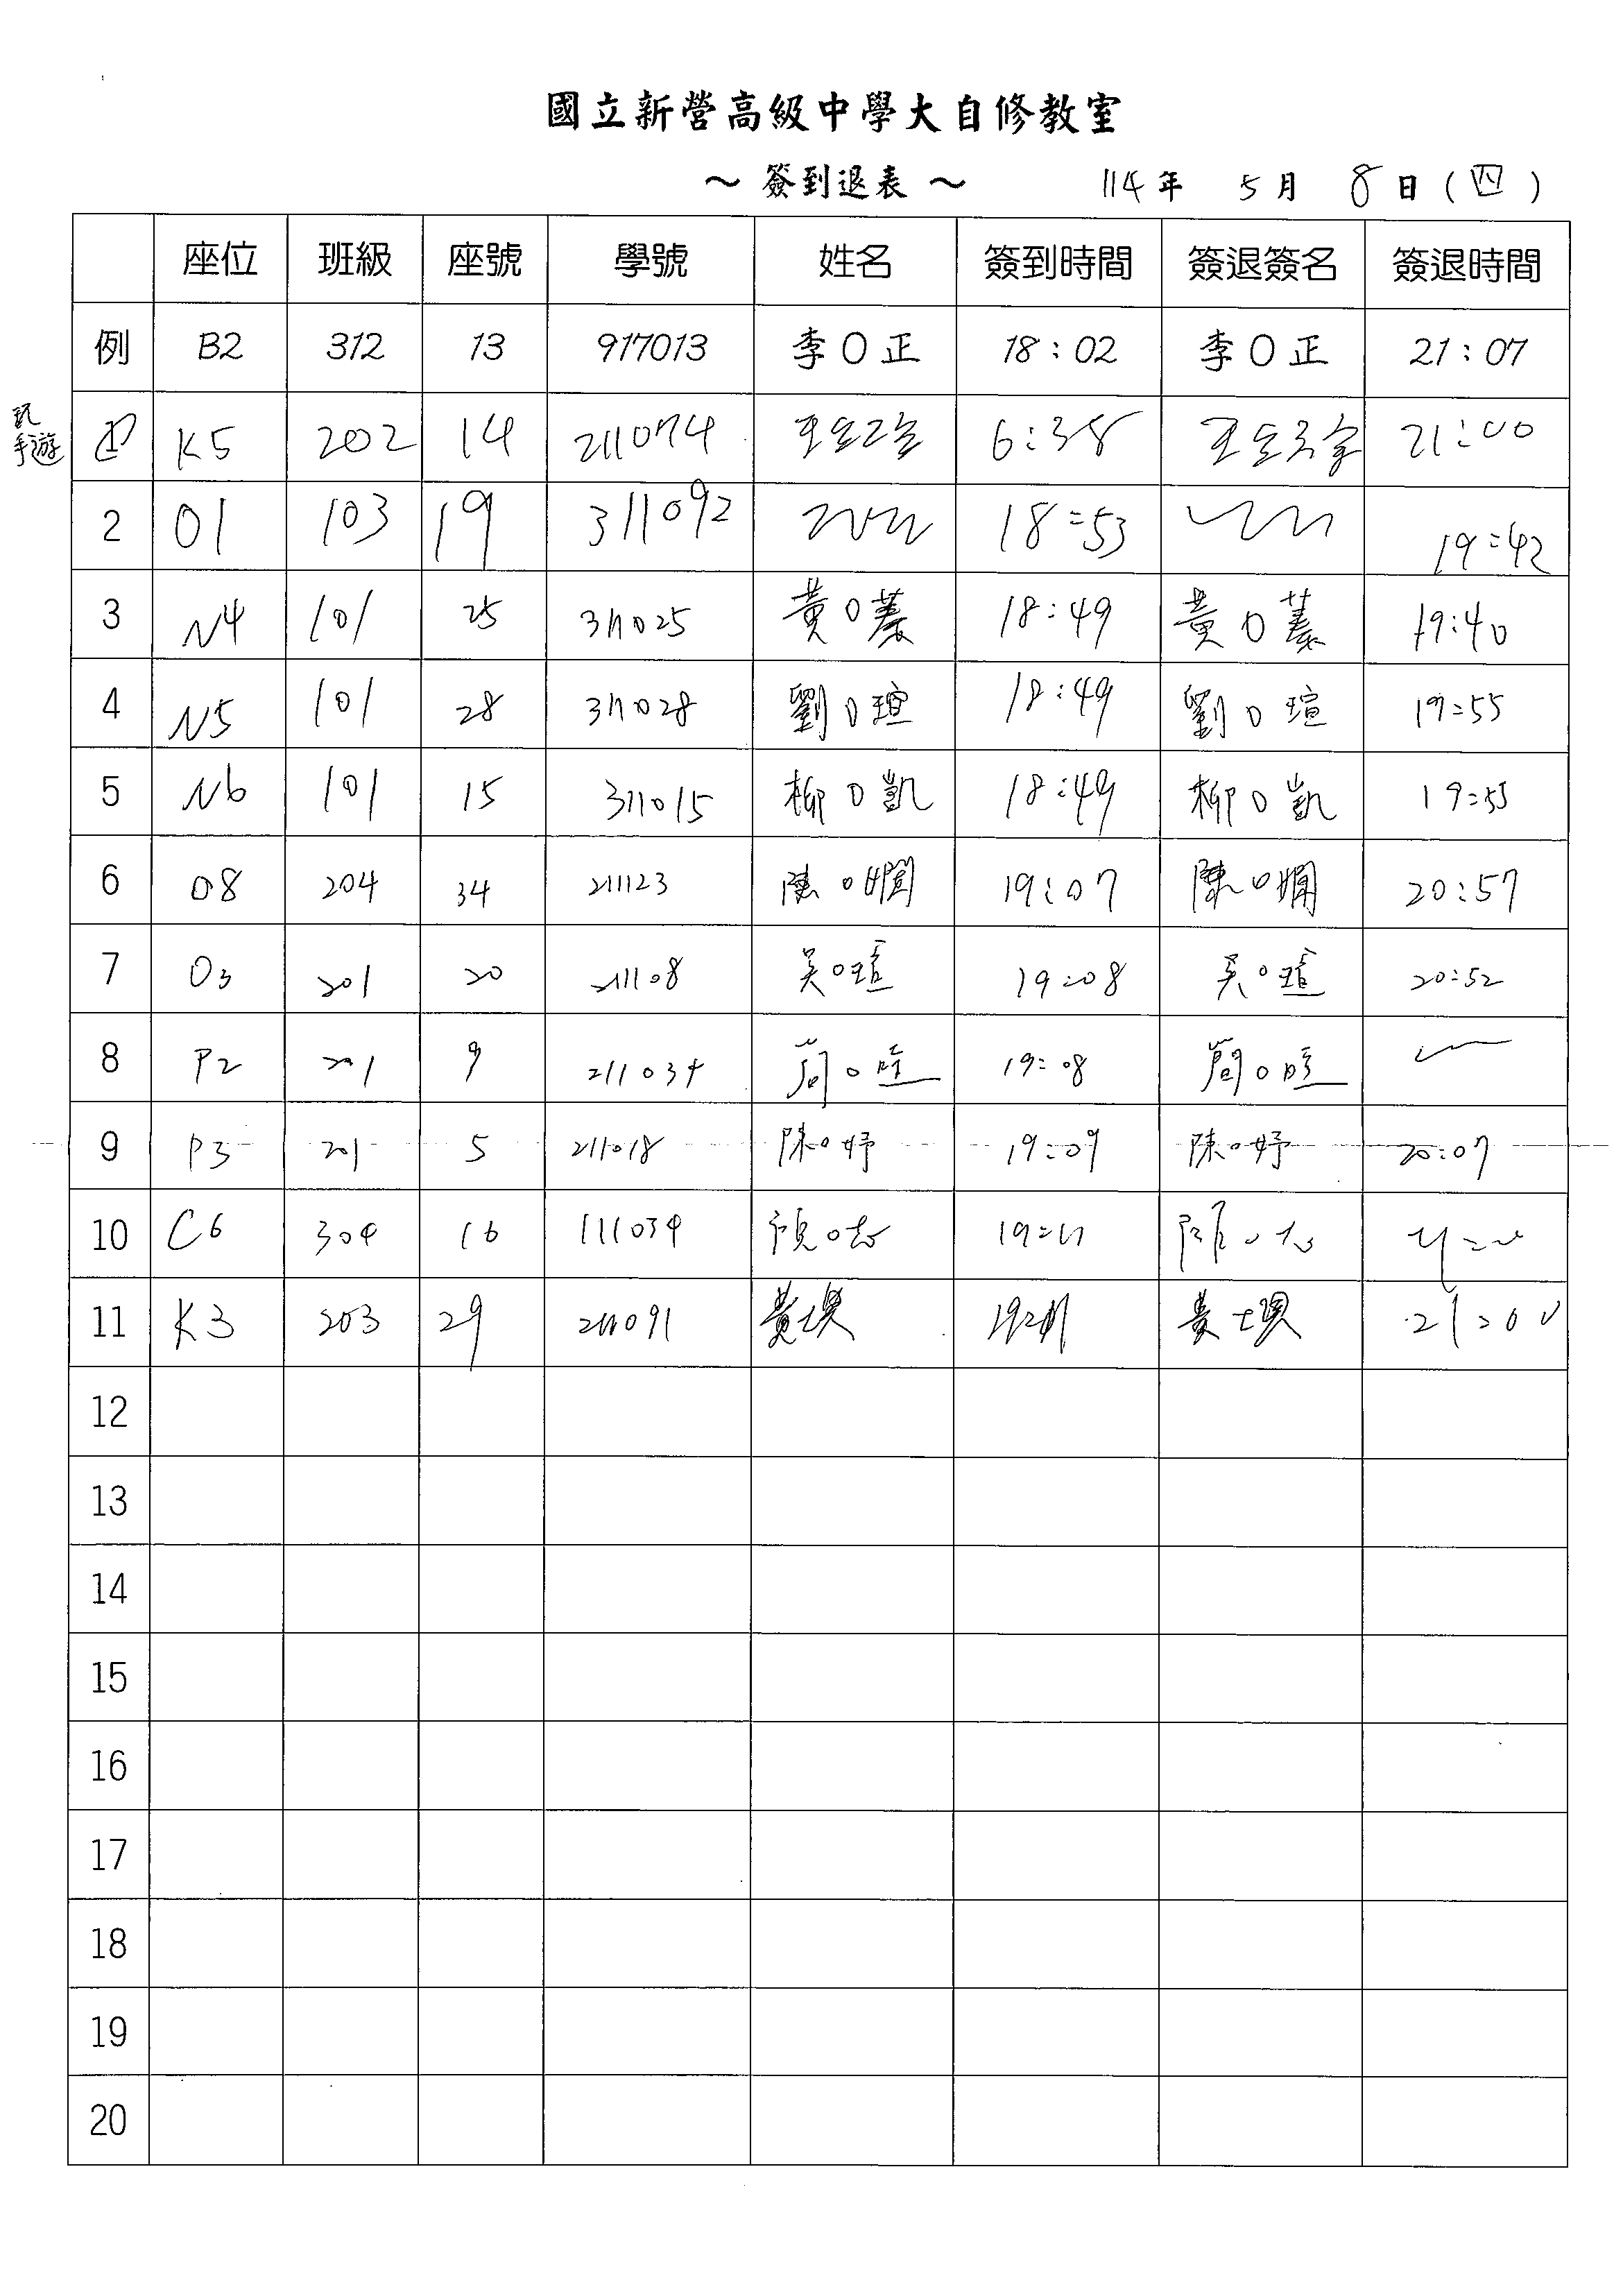 國立新營高級中學大自修教室
～ 簽到退表 ～ 114年 5月 8日(四)
座位 班級 座號 學號 姓名 簽到時間 簽退簽名 簽退時間
例 B2 312 13 917013 李O正 18:02 李O正 21:07
玩
手遊
1 K5 202 14 211074 6:38 21:00
2 01 103 19 311092 18:53 19:42
3 N4 101 25 311025 黃O蓁 18:49 黃O蓁 19:40
4 N5 101 28 311028 劉O瑄 18:49 劉O瑄 19:55
5 N6 101 15 311015 柳O凱 18:49 柳O凱 19:55
6 08 204 34 211123 陳O嫻 19:07 陳O嫻 20:57
7 03 201 20 211108 吳O瑄 19:08 吳O瑄 20:52
8 P2 201 9 211034 簡O 19:08 簡O
9 P3 201 5 211018 陳O妤 19:09 陳O妤 20:07
10 C6 304 16 111034 19:11
11 K3 203 29 211091 黃 黃 21:00
12
13
14
15
16
17
18
19
20